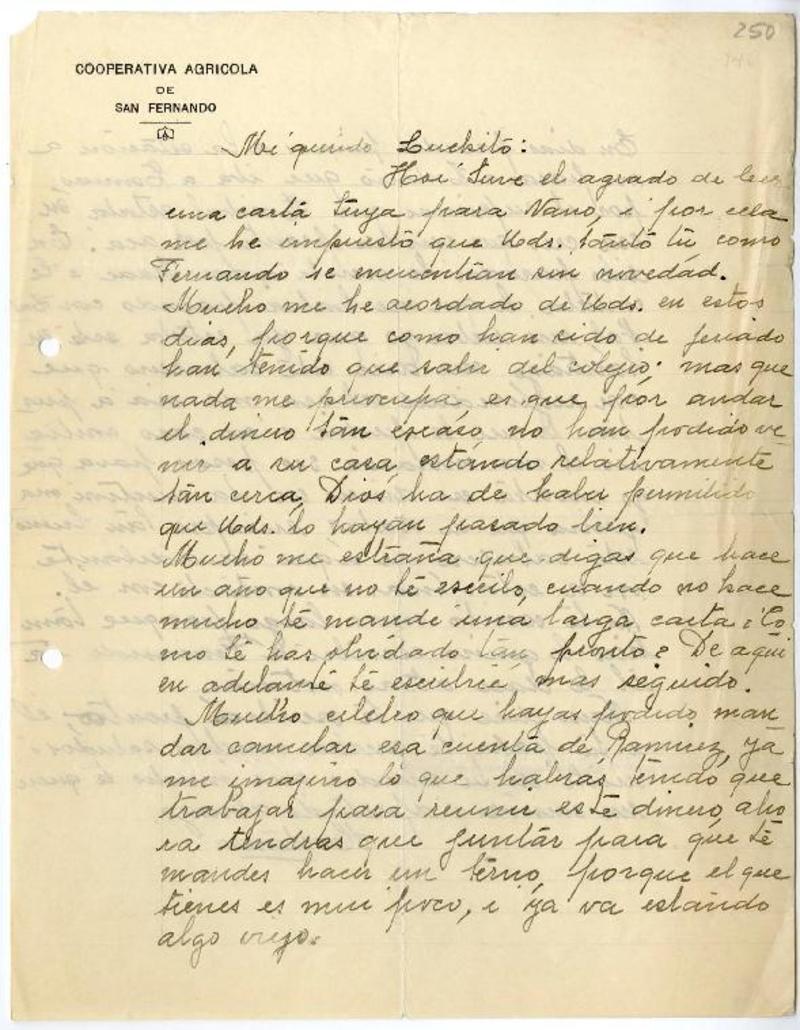 250
COOPERATIVA AGRICOLA
DE
SAN FERNANDO
Mi querido Luchito:
Hoi tuve el agrado de leer
una carta tuya para Nano, i por ella
me he impuesto que Uds. tanto tú como
Fernando se encuentran sin novedad.
Mucho me he acordado de Uds. en estos
dias, porque como han sido de feriado
han tenido que salir del colejio; mas que
nada me preocupa, es que por andar
el dinero tan escaso no han podido ve
nir a su casa, estando relativamente
tan cerca, Dios ha de haber permitido
que Uds. lo hayan pasado bien.
Mucho me estraña que digas que hace
un año que no te escribo, cuando no hace
mucho te mandé una larga carta ¿Co
mo te has olvidado tan pronto? De aqui
en adelante te escribiré mas seguido.
Mucho celebro que hayas podido man
dar cancelar esa cuenta de Ramirez, ya
me imajino lo que habrás tenido que
trabajar para reunir este dinero, aho
ra tendras que juntar para que te
mandes hacer un terno, porque el que
tienes es mui poco, i ya va estando
algo viejo.